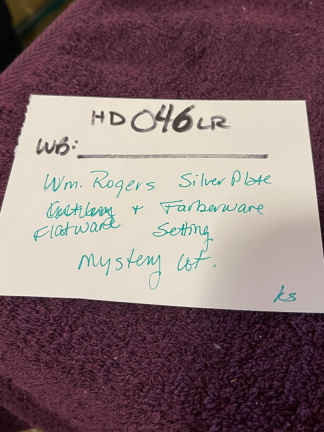 HD046LR
WB:
Wm. Rogers Silver Plate
+ Farberware
Flatware Setting
Mystery Lot.
ks